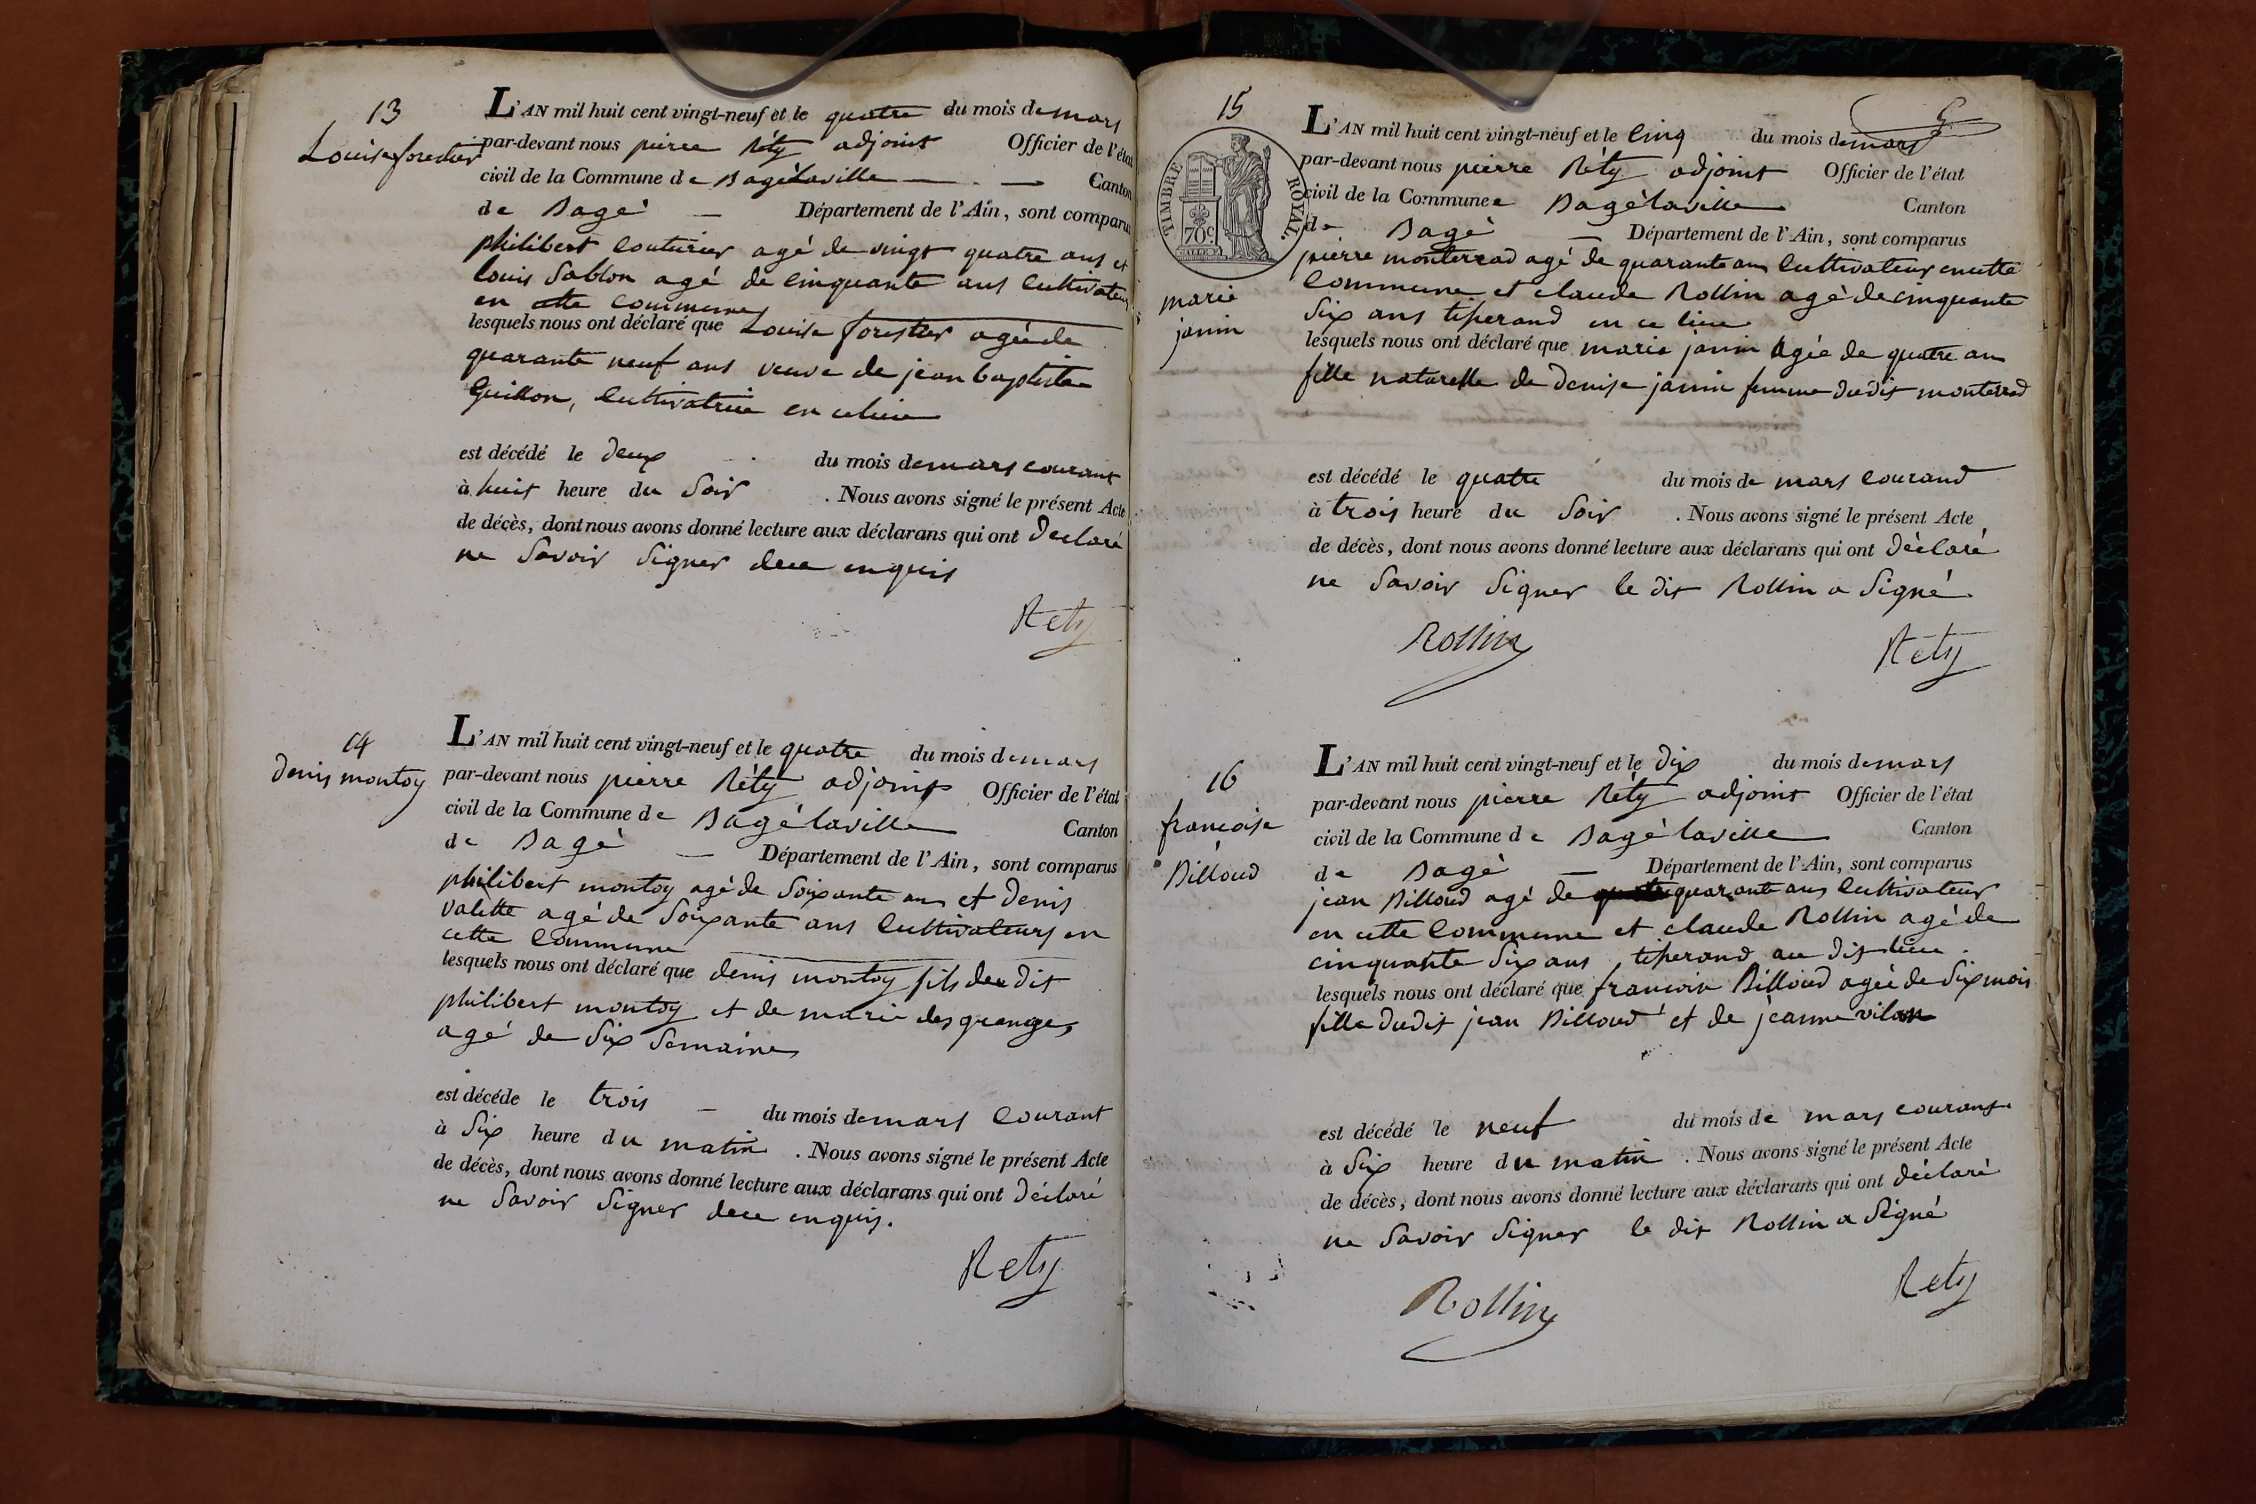 13
Louise forestier
L'AN mil huit cent vingt-neuf et le quatre du mois de mars
par-devant nous pierre Réty adjoint Officier de l'état
civil de la Commune de Bagélaville Canton
de Bagé Département de l'Ain, sont comparus
philibert Couturier agé de vingt quatre ans et
louis Sablon agé de Cinquante ans Cultivateurs
en cette commune
lesquels nous ont déclaré que Louise forestier agée de
quarante neuf ans veuve de jean baptiste
Guillon, Cultivatrice en ce lieu
est décédé le deux du mois de mars courant
à huit heure du Soir . Nous avons signé le présent Acte
de décès, dont nous avons donné lecture aux déclarans qui ont Déclaré
ne Savoir Signer de ce enquis
Rety
14
denis montoy
L'AN mil huit cent vingt-neuf et le quatre du mois de mars
par-devant nous pierre Réty adjoint Officier de l'état
civil de la Commune de Bagélaville Canton
de Bagé Département de l'Ain, sont comparus
philibert montoy agé de Soixante ans et Denis
Valette agé de Soixante ans Cultivateurs en
cette Commune
lesquels nous ont déclaré que denis montoy fils du dit
philibert montoy et de marie desgranges
agé de Six Semaines
est décéde le trois du mois de mars Courant
à Six heure du matin . Nous avons signé le présent Acte
de décès, dont nous avons donné lecture aux déclarans qui ont Déclaré
ne Savoir Signer de ce enquis.
Rety
15
TIMBRE ROYAL.
70c
marie
janin
L'AN mil huit cent vingt-neuf et le Cinq du mois de mars
par-devant nous pierre Réty adjoint Officier de l'état
civil de la Commune Bagélaville Canton
de Bagé Département de l'Ain, sont comparus
pierre monterrad agé de quarante ans Cultivateur en cette
Commune et claude Rollin agé de cinquante
Six ans tiserand en ce lieu
lesquels nous ont déclaré que marie janin agée de quatre ans
fille naturelle de Denise janin femme dudit monterrad
est décédé le quatre du mois de mars Courand
à trois heure du Soir . Nous avons signé le présent Acte
de décès, dont nous avons donné lecture aux déclarans qui ont Déclaré
ne Savoir Signer le dit Rollin a Signé
Rollin
Rety
16
francoise
Billoud
L'AN mil huit cent vingt-neuf et le Dix du mois de mars
par-devant nous pierre Réty adjoint Officier de l'état
civil de la Commune de Bagélaville Canton
de Bagé Département de l'Ain, sont comparus
jean Billoud agé de quarante ans Cultivateur
en cette Commune et claude Rollin agé de
cinquante Six ans tiserand au Dit lieu
lesquels nous ont déclaré que francoise Billoud agée de Six mois
fille dudit jean Billoud et de jeanne
est décédé le neuf du mois de mars courant
à Six heure du matin . Nous avons signé le présent Acte
de décès, dont nous avons donné lecture aux déclarans qui ont Déclaré
ne Savoir Signer le dit Rollin a Signé
Rollin
Rety